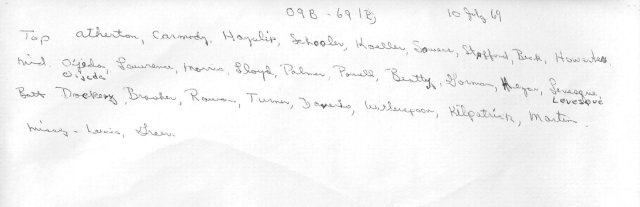 09B - 69 (B) 10 July 69
Top Atherton, Carmody, Hayslip, Schooler, Koeller, Sowers, Stafford, Beck, Howarka
Mid. Ojeda, Lawrence, Morris, Lloyd, Palmer, Powell, Beatty, Gorman, Levesque
O'jeda Levesque
Bott Dockery, Brawker, Rowan, Turner, Witherspoon, Kilpatrick, Martin.
Missing - Lewis, Green.